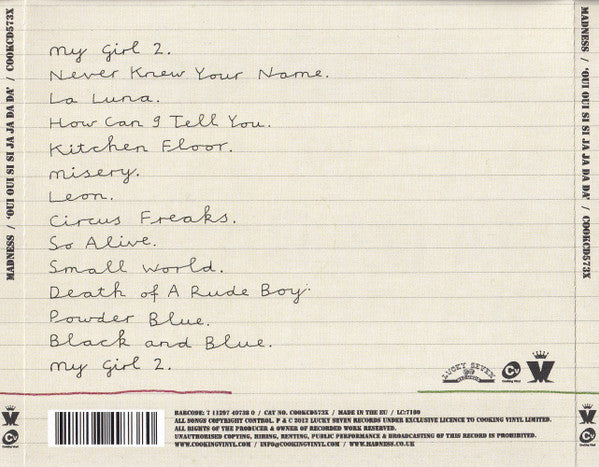 MADNESS / 'OUI OUI SI SI JA JA DA DA' / COOKCD573X
My Girl 2.
Never Knew Your Name.
La Luna.
How Can I Tell You.
Kitchen Floor.
misery.
Leon.
Circus Freaks.
So Alive.
Small World.
Death of A Rude Boy.
Powder Blue.
Black and Blue.
My Girl 2.
LUCKY SEVEN
RECORDS
Cooking Vinyl
M
BARCODE: 7 11297 49738 0 / CAT NO. COOKCD573X / MADE IN THE EU / LC:7180
ALL SONGS COPYRIGHT CONTROL. P & C 2012 LUCKY SEVEN RECORDS UNDER EXCLUSIVE LICENCE TO COOKING VINYL LIMITED.
ALL RIGHTS OF THE PRODUCER & OWNER OF RECORDED WORK RESERVED.
UNAUTHORISED COPYING, HIRING, RENTING, PUBLIC PERFORMANCE & BROADCASTING OF THIS RECORD IS PROHIBITED.
WWW.COOKINGVINYL.COM / INFO@COOKINGVINYL.COM / WWW.MADNESS.CO.UK
MADNESS / 'OUI OUI SI SI JA JA DA DA' / COOKCD573X